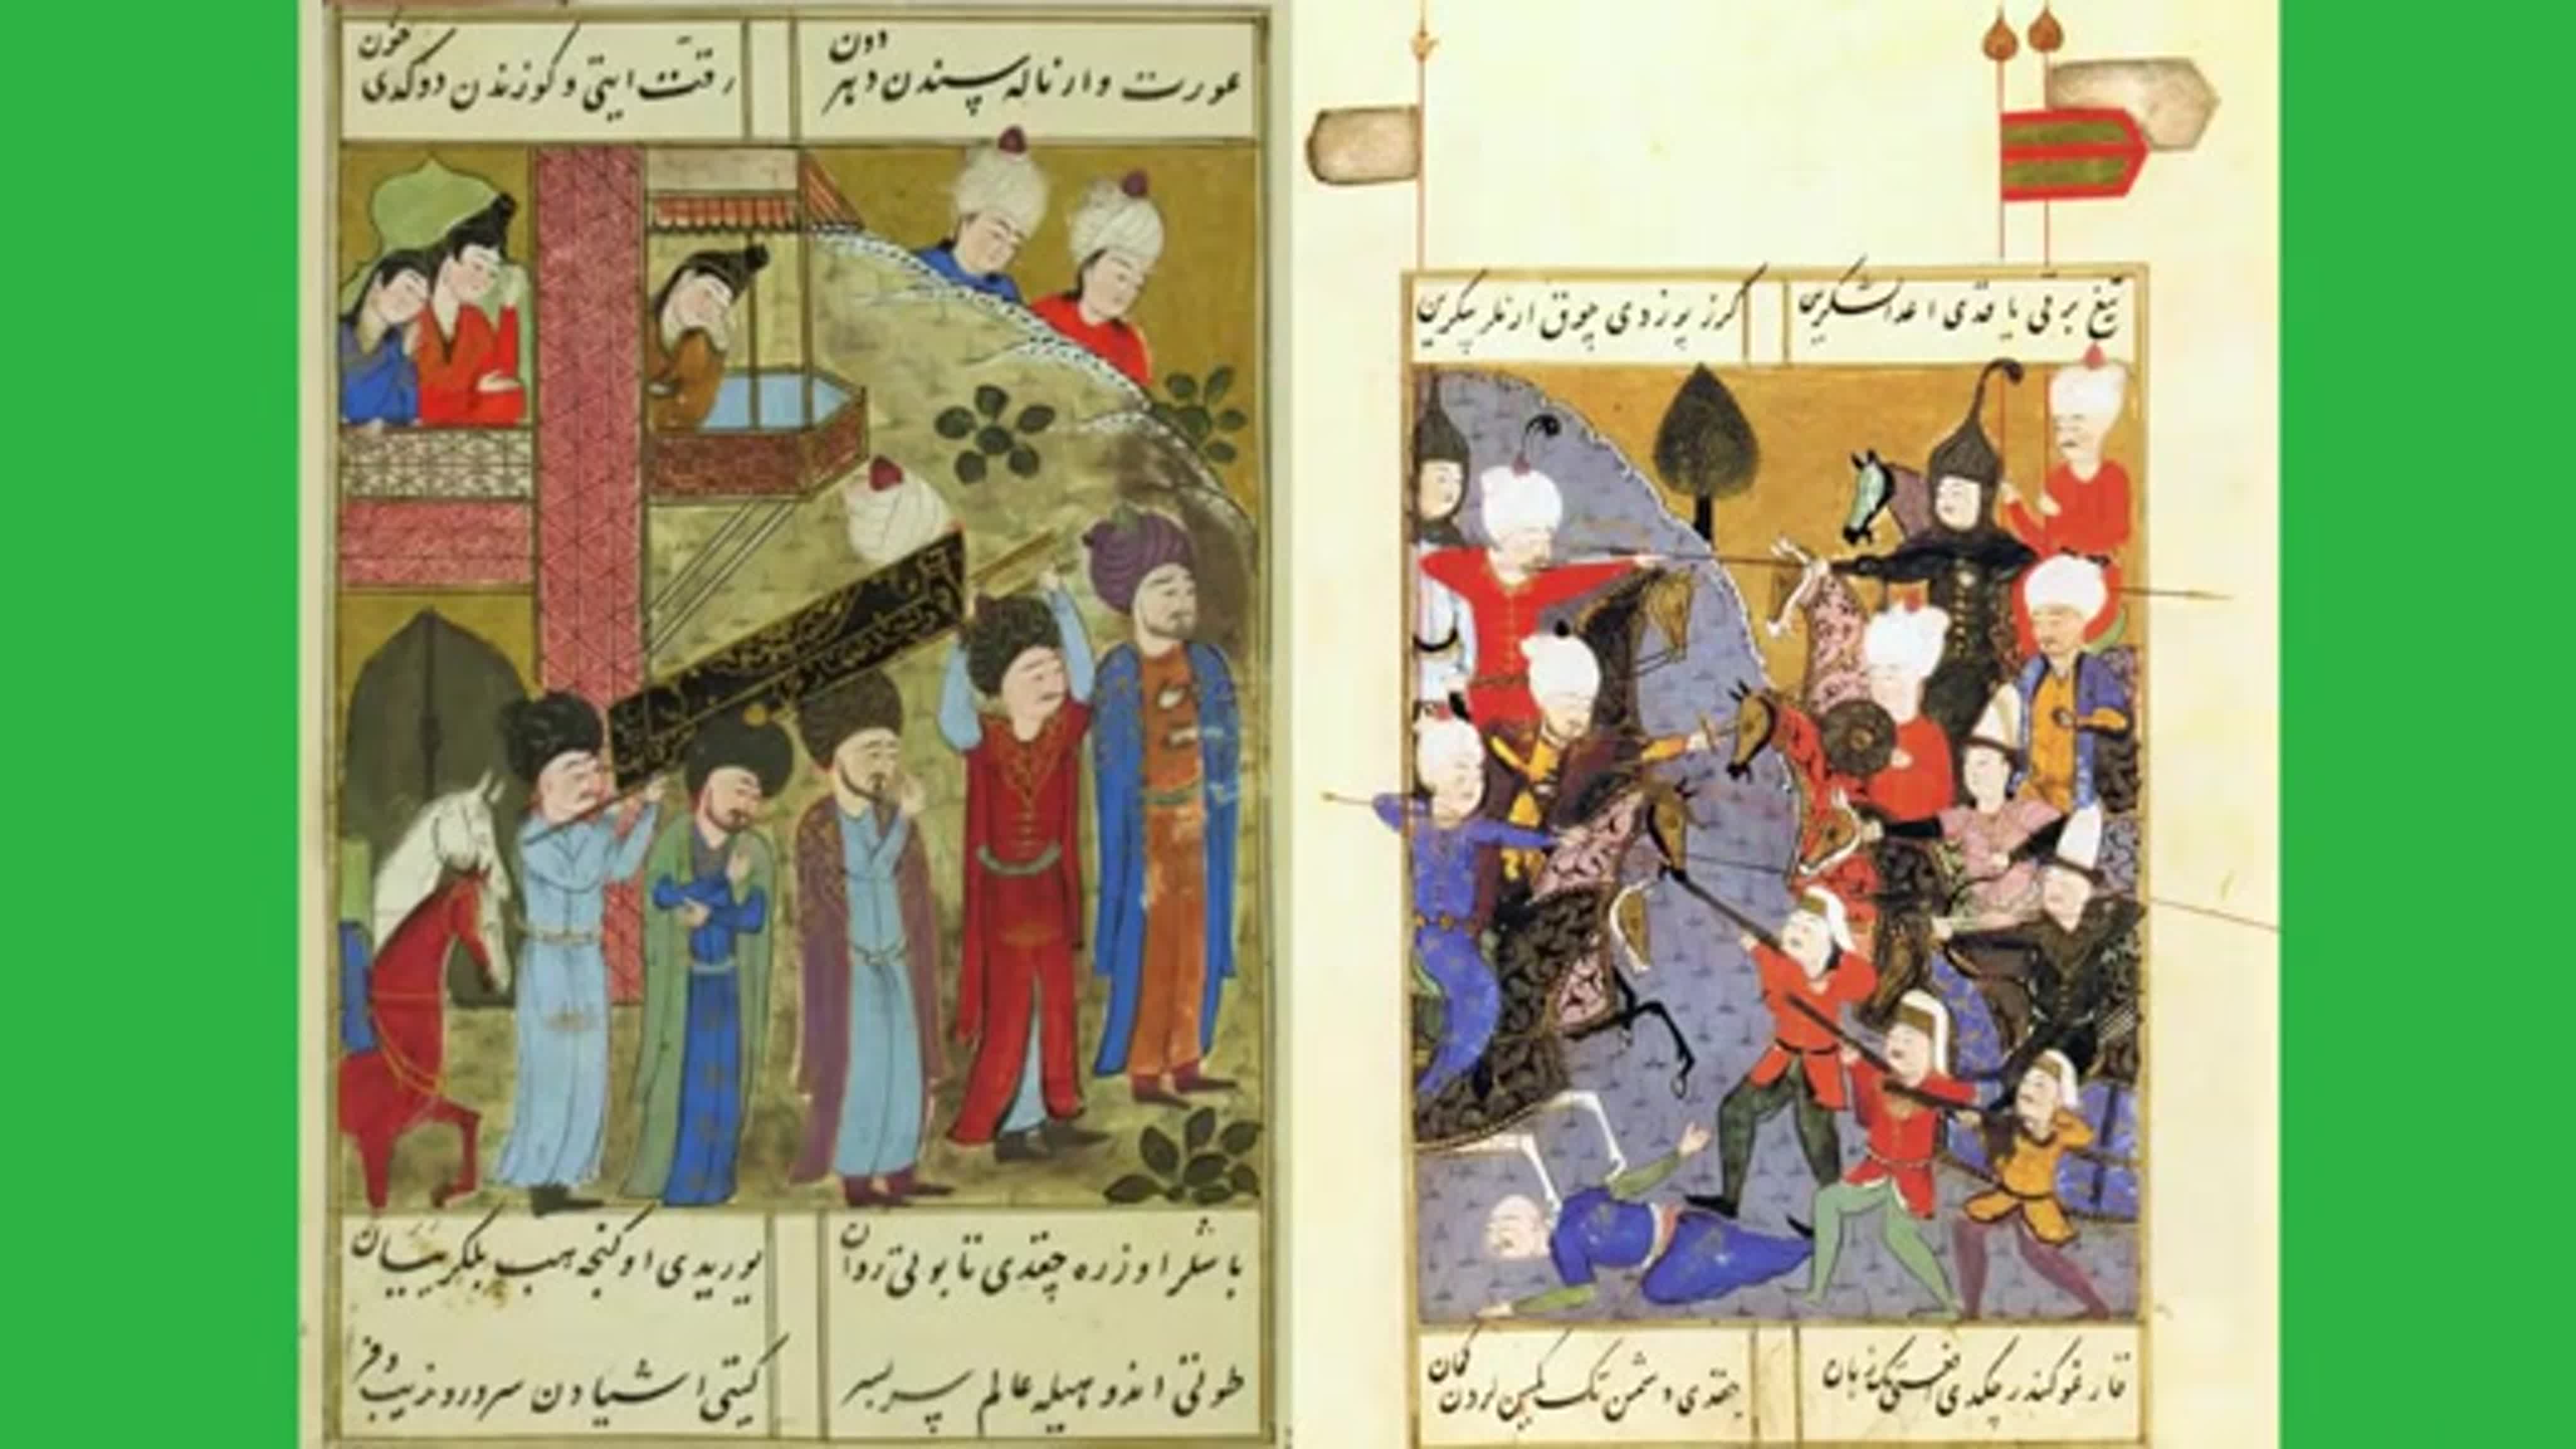 عورت وار ناله سندن دهر دون رقت ایتی و کوزندن دوکدی خون
باشلر اوزره چقدی تابوتی روان یوریدی اوکنجه هب
طوتی اندوهیله عالم سربسر کیتی اشیادن سرور و زیب و فر
تیغ برقی یاقدی اعدا لشکرین کرز بوزدی چوق ارنلر پیکرین
چکدی زبان چقدی دشمن تک